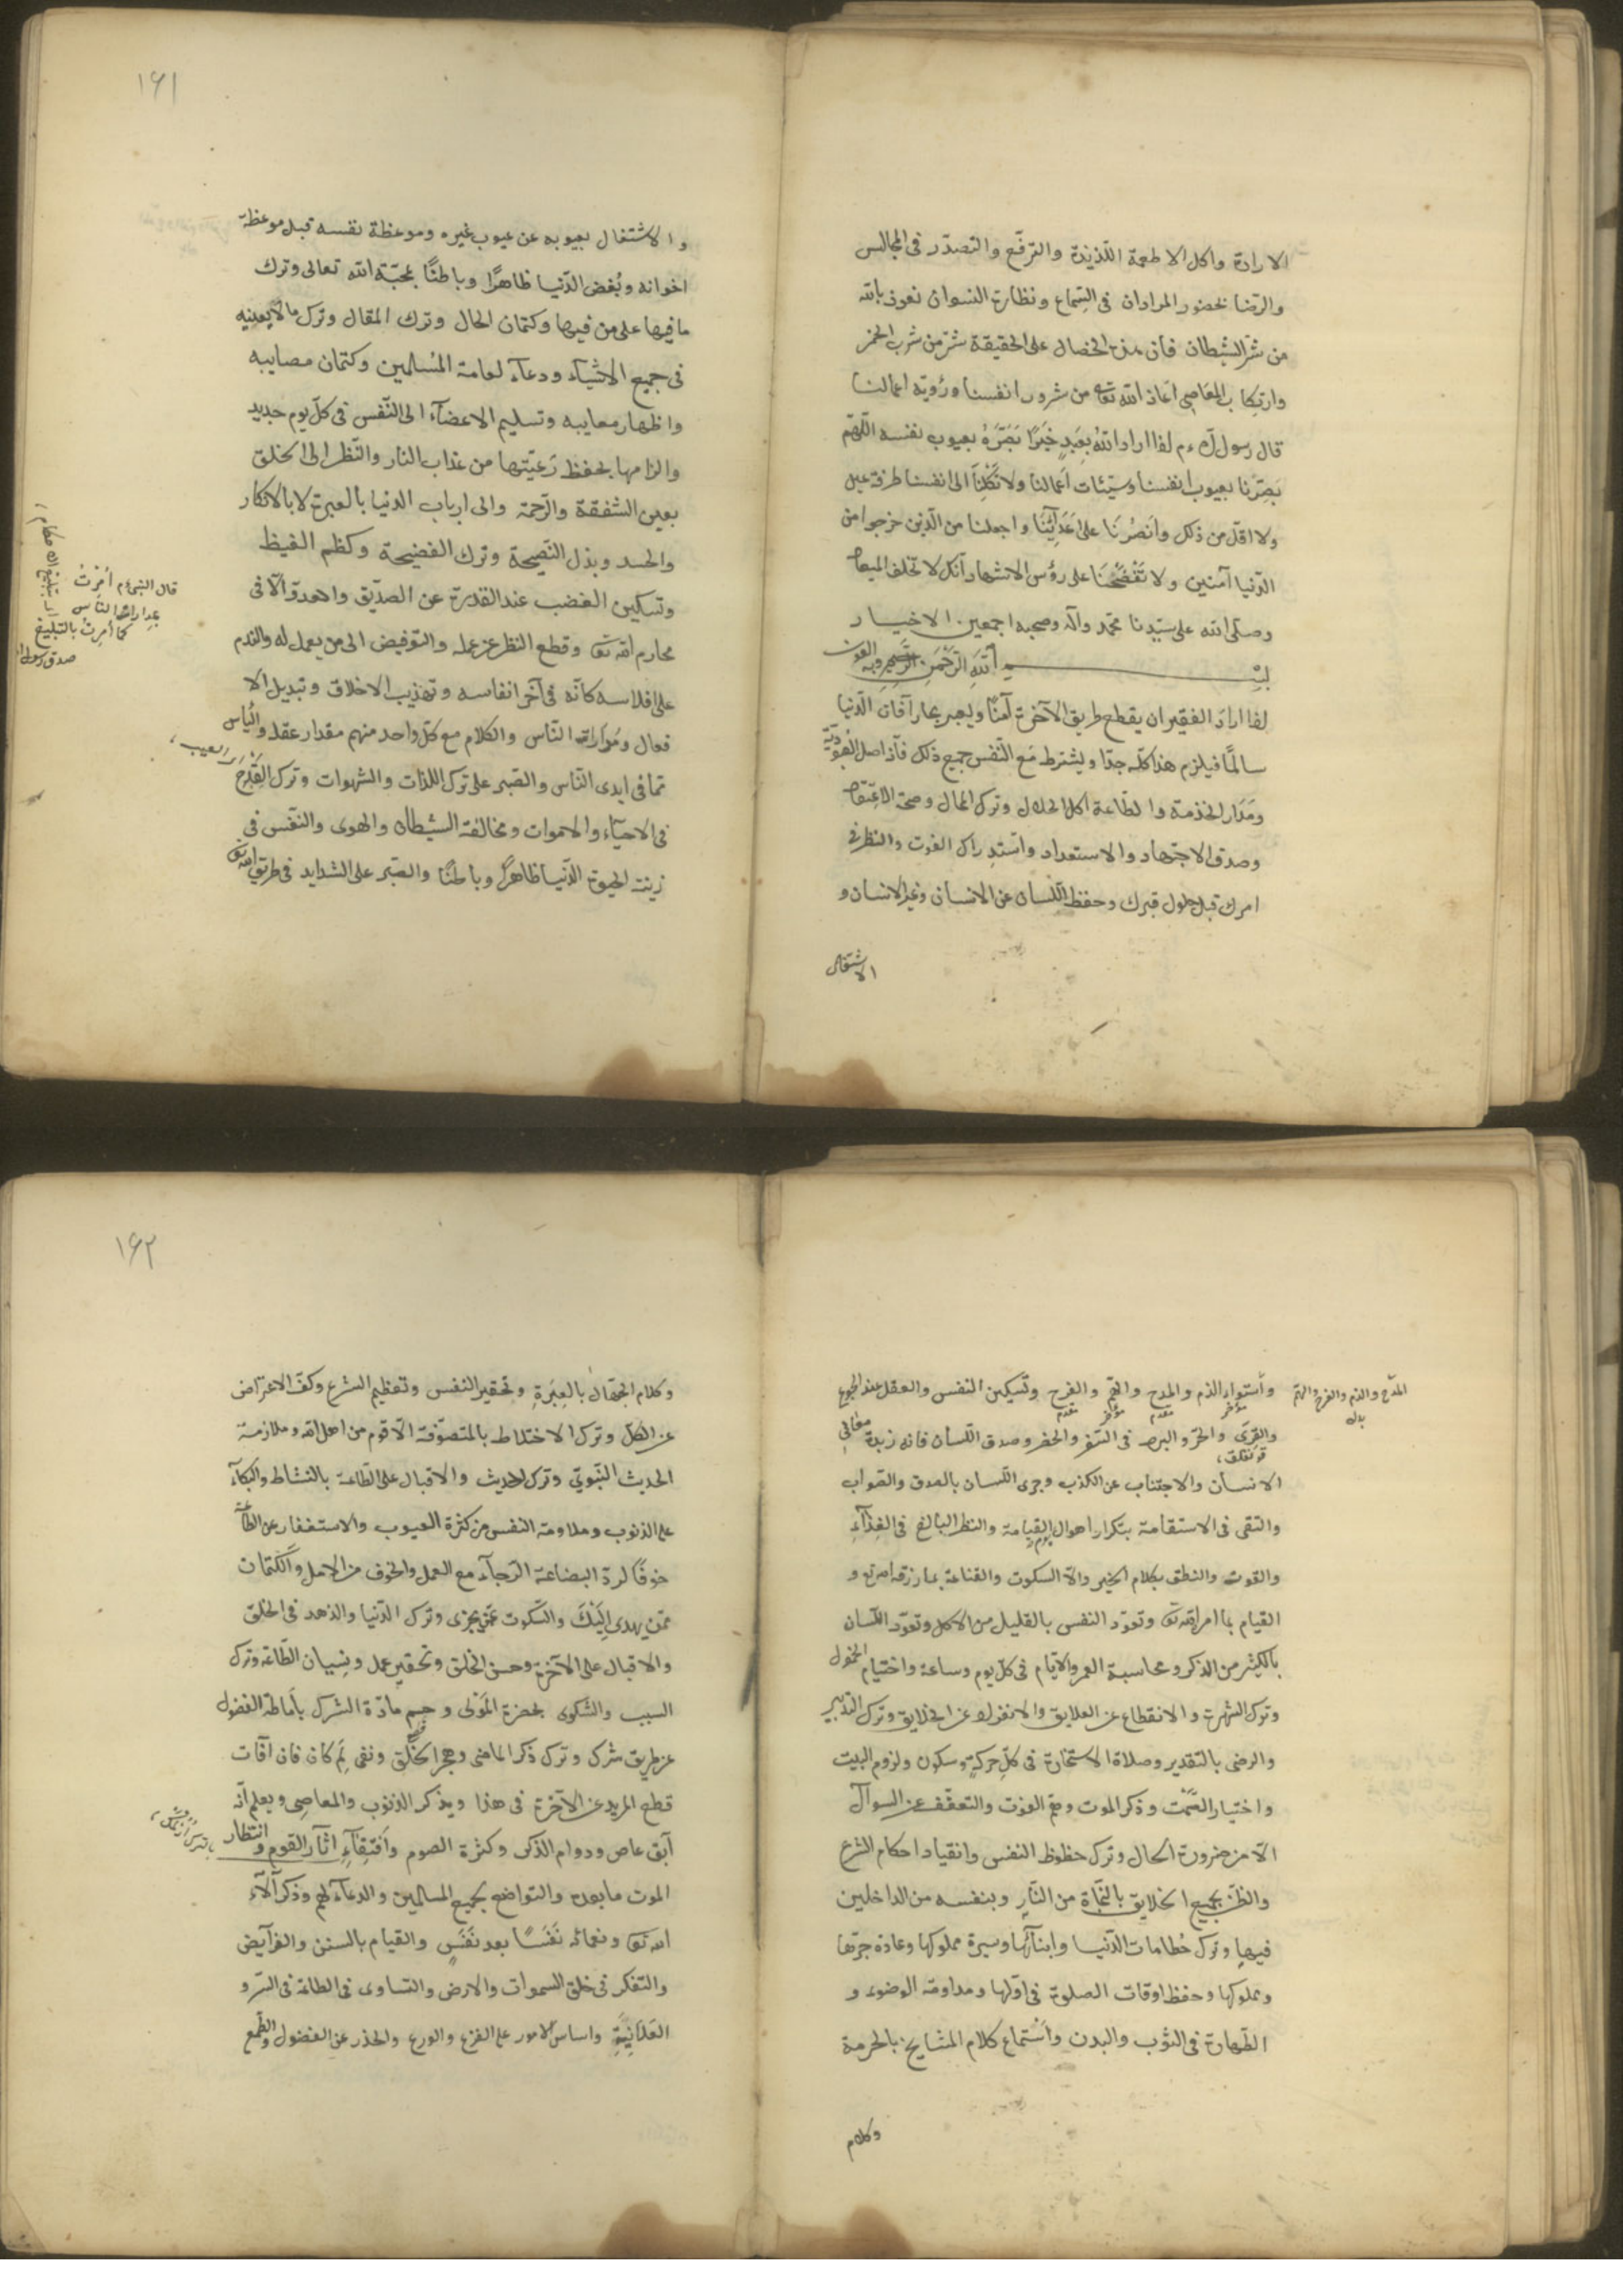 الارادة واكل الاطعمة اللّذيذة والترفّع والتصدّر فى المجالس
والرّضا بحضور المرادان فى السّماع ونظارة النسوان نعوذ بالله
من شرّ الشيطان فان هذه الخصال على الحقيقة شرّ من شرب الخمر
وارتكاب المعاصى اعاذنا الله تعالى من شرور انفسنا ورؤية اعمالنا
قال رسول الله عم اذا اراد الله بعبد خيرًا بصّره بعيوب نفسه اللّهمّ
بصّرنا بعيوب انفسنا وسيّئات اعمالنا ولا تكلنا الى انفسنا طرفة عين
ولا اقلّ من ذلك وانصرنا على اعدائنا واجعلنا من الّذين خرجوا من
الدّنيا آمنين ولا تفضحنا على رؤس الاشهاد انّك لا تخلف الميعاد
وصلّى الله على سيّدنا محمّد وآله وصحبه اجمعين الاخيار
بسم الله الرّحمن الرّحيم وبه العون
اذا اراد الفقير ان يقطع طريق الآخرة آمنًا ويعبر بحار آفات الدّنيا
سالمًا فيلزم هذا كلّه جدّا ويشترط مع النّفس جميع ذلك فانّ اصل العبوديّة
ومدار الخدمة والطّاعة اكل الحلال وترك المال وصحّة الاعتقاد
وصدق الاجتهاد والاستعداد واستدراك الفوت والنظر فى
امرك قبل حلول قبرك وحفظ اللّسان عن الانسان وغير الانسان و
الاشتغال
١٦١
والاشتغال بعيوبه عن عيوب غيره وموعظة نفسه قبل موعظة
اخوانه وبُغض الدّنيا ظاهرًا وباطنًا بمحبّة الله تعالى وترك
ما فيها على من فيها وكتمان الحال وترك المقال وترك ما لا يعنيه
فى جميع الاشياء ودعاء لعامة المسلمين وكتمان مصايبه
واظهار معايبه وتسليم الاعضاء الى النّفس فى كلّ يوم جديد
والزامها بحفظ رعيّتها من عذاب النار والنّظر الى الخلق
بعين الشفقة والرّحمة والى ارباب الدنيا بالعبرة لا بالانكار
والحسد وبذل النّصيحة وترك الفضيحة وكظم الغيظ
وتسكين الغضب عند القدرة عن الصدّيق والعدوّ الّا فى
محارم الله تعالى وقطع النظر عن عمله والتوفيض الى من يعمل له والندم
على افلاسه كانّه فى آخر انفاسه وتهذيب الاخلاق وتبديل الا
فعال ومُدارات النّاس والكلام مع كلّ واحد منهم مقدار عقله واليأس
ممّا فى ايدى النّاس والصّبر على ترك اللذّات والشهوات وترك القدح
اى العيب
فى الاحياء والاموات ومخالفة الشيطان والهوى والنّفس فى
زينة الحيوة الدّنيا ظاهرًا وباطنًا والصّبر على الشدايد فى طريق الله تعالى
قال النبى عم اُمِرْتُ
بمدارات الناس
كما اُمِرْتُ بالتبليغ
صدق رسول الله
واستواء الذم والمدح والغمّ والفرح وتسكين النفس والعقل عند الجوع
المدح والذم والفرح والغم
بدل
مؤخر مقدم مؤخر مقدم
والقرى والحرّ والبرد فى السّفر والحضر وصدق اللّسان فانه زبدة معانى
الانسان والاجتناب عن الكذب وجرى اللّسان بالصدق والصّواب
والتقى فى الاستقامة بتكرار اهوال يوم القيامة والنظر البالغ فى الغذاء
والقوت والنطق بكلام الخير والّا السكوت والقناعة بما رزقه الله تع و
القيام بما امر الله تعالى وتعوّد النفس بالقليل من الاكل وتعوّد اللّسان
بالكثير من الذكر ومحاسبة العمر والايّام فى كلّ يوم وساعة واختيار الخمول
وترك الشهرة والانقطاع عن العلايق والانفراد عن الخلايق وترك التدبير
والرضى بالتقدير وصلاة الاستخارة فى كلّ حركة وسكون ولزوم البيت
واختيار الصّمت وذكر الموت وهمّ الفوت والتعفّف عن السوأل
الّا من ضرورة الحال وترك حظوظ النفس وانقياد احكام الشرع
والظّن بجميع الخلايق بالنّجاة من النّار وبنفسه من الداخلين
فيها وترك حُطامات الدّنيا وابنائها وسيرة مملوكها وعادة جرّها
ومملوكها وحفظ اوقات الصلوة فى اوّلها ومداومة الوضوء و
الطّهارة فى الثوب والبدن واستماع كلام المشايخ بالحرمة
وكلام
١٦٢
وكلام الجهّال بالعبرة وتحقير النفس وتعظيم الشرع وكفّ الاعتراض
عن الكلّ وترك الاختلاط بالمتصوّفة الّا قوم من اهل الله وملازمة
الحديث النّبوىّ وترك الحديث والاقبال على الطّاعة بالنشاط والبكاء
على الذنوب وملامة النفس من كثرة العيوب والاستغفار عن الطاعة
خوفًا لردّ البضاعة الرّجاء مع العمل والخوف من الامل والكتمان
عمّن يهدى اليك والسّكوت عمّن يجزى وترك الدّنيا والزهد فى الخلق
والاقبال على الآخرة وحسن الخلق وتحقير عمل ونسيان الطّاعة وترك
السبب والشكوى بحضرة المولى وحسم مادّة الشرك باماطة الفضول
عن طريق شرك وترك ذكر الماضى وهجر الخلق ونفى لِمَ كان فان آفات
قطع المريد عن الآخرة فى هذا ويذكر الذنوب والمعاصى ويعلم انّه
آبق عاص ودوام الذكر وكثرة الصوم واقتفاء اثار القوم وانتظار
الموت ما بعده والتواضع بجميع المسلمين والدعاء لهم وذكر آلاء
الله تعالى ونعمائه نَفَسًا بعد نَفَسٍ والقيام بالسنن والفرايض
والتفكر فى خلق السموات والارض والتساوى فى الطاعة فى السّر و
العلانِيَةِ واساس الامور على الفزع والورع والحذر عن الفضول والطمع